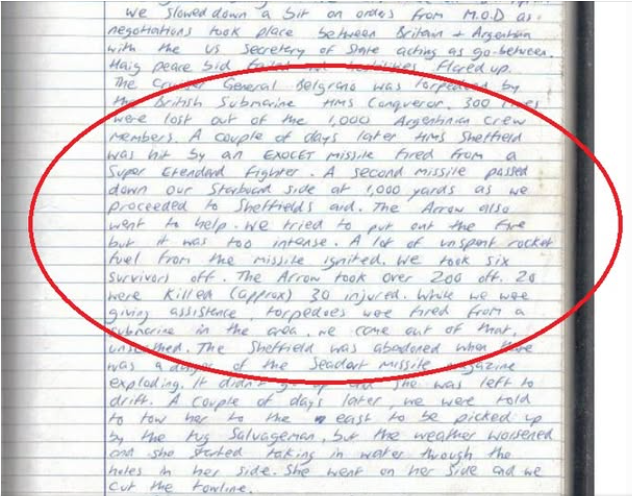 we slowed down a bit on orders from M.O.D as
negotiations took place between Britain + Argentina
with the US Secretary of State acting as go-between.
Haig peace bid failed and hostilities flared up.
The Cruiser General Belgrano was torpedoed by
the British Submarine HMS Conqueror. 300 lives
were lost out of the 1,000 Argentinian crew
members. A couple of days later HMS Sheffield
was hit by an EXOCET missile fired from a
Super Etendard fighter. A second missile passed
down our Starboard side at 1,000 yards as we
proceeded to Sheffields aid. The Arrow also
went to help. We tried to put out the fire
but it was too intense. A lot of unspent rocket
fuel from the missile ignited. We took six
survivors off. The Arrow took over 200 off. 20
were killed (approx) 30 injured. While we were
giving assistance, torpedoes were fired from a
submarine in the area, we came out of that,
unscathed. The Sheffield was abandoned when there
was a danger of the Seadart missile magazine
exploding. It didn't go up and she was left to
drift. A couple of days later, we were told
to tow her to the east to be picked up
by the tug Salvageman, but the weather worsened
and she started taking in water through the
holes in her side. She went on her side and we
cut the towline.